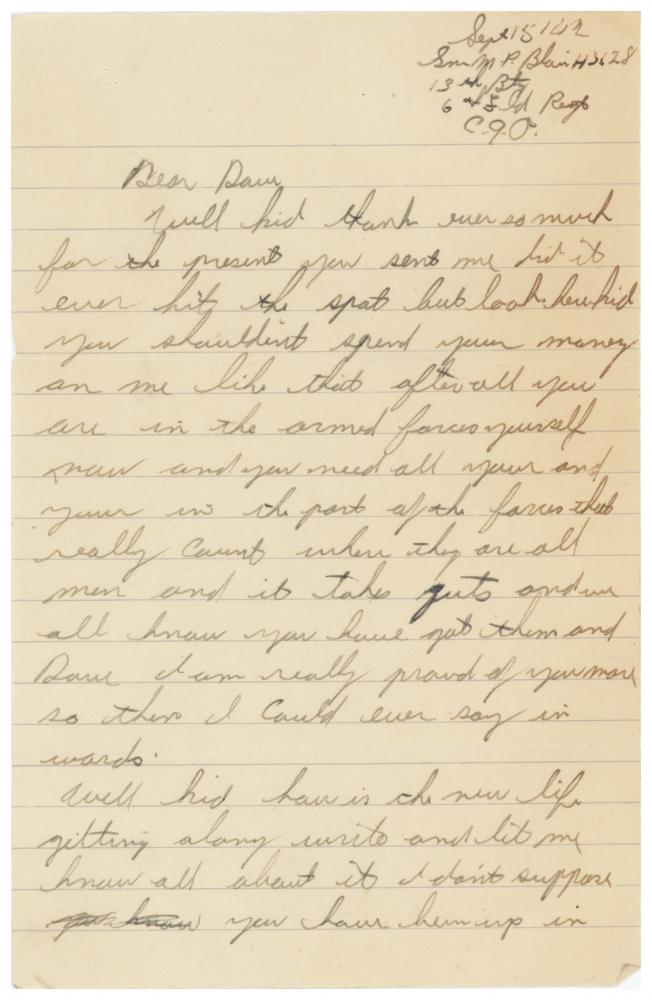 Sept 15/42
Gnr M P. Blair H3628
13th Bty
6th Fld Regt
C.A.O.
Dear Dave
Well kid thank ever so much
for the present you sent me did it
ever hit the spot but look here kid
you shouldint spend your money
on me like that after all you
are in the armed forces yourself
now and you need all your and
your in the part of the forces that
really count where they are all
men and it takes guts and we
all know you have got them and
Dave I am really proud of you more
so then I could ever say in
words.
Well kid how is the new life
getting along write and let me
know all about it I don't suppose
you have been up in